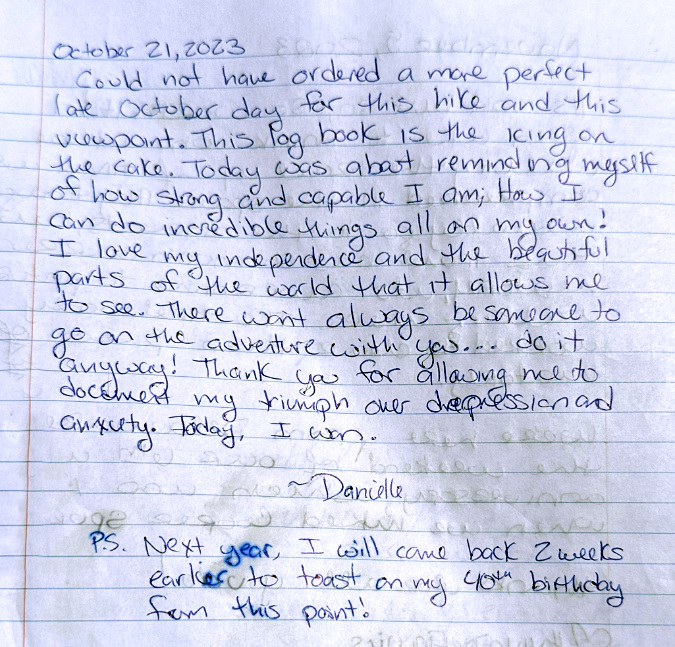 October 21, 2023
Could not have ordered a more perfect
late October day for this hike and this
viewpoint. This log book is the icing on
the cake. Today was about reminding myself
of how strong and capable I am; How I
can do incredible things all on my own!
I love my independence and the beautiful
parts of the world that it allows me
to see. There won't always be someone to
go on the adventure with you... do it
anyway! Thank you for allowing me to
document my triumph over depression and
anxiety. Today, I won.
~ Danielle
P.S. Next year, I will come back 2 weeks
earlier to toast on my 40th birthday
from this point!